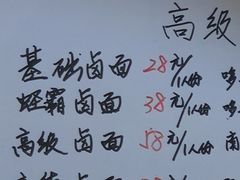 高级
基础卤面 28元/1人份
蛏霸卤面 38元/1人份
高级卤面 58元/1人份